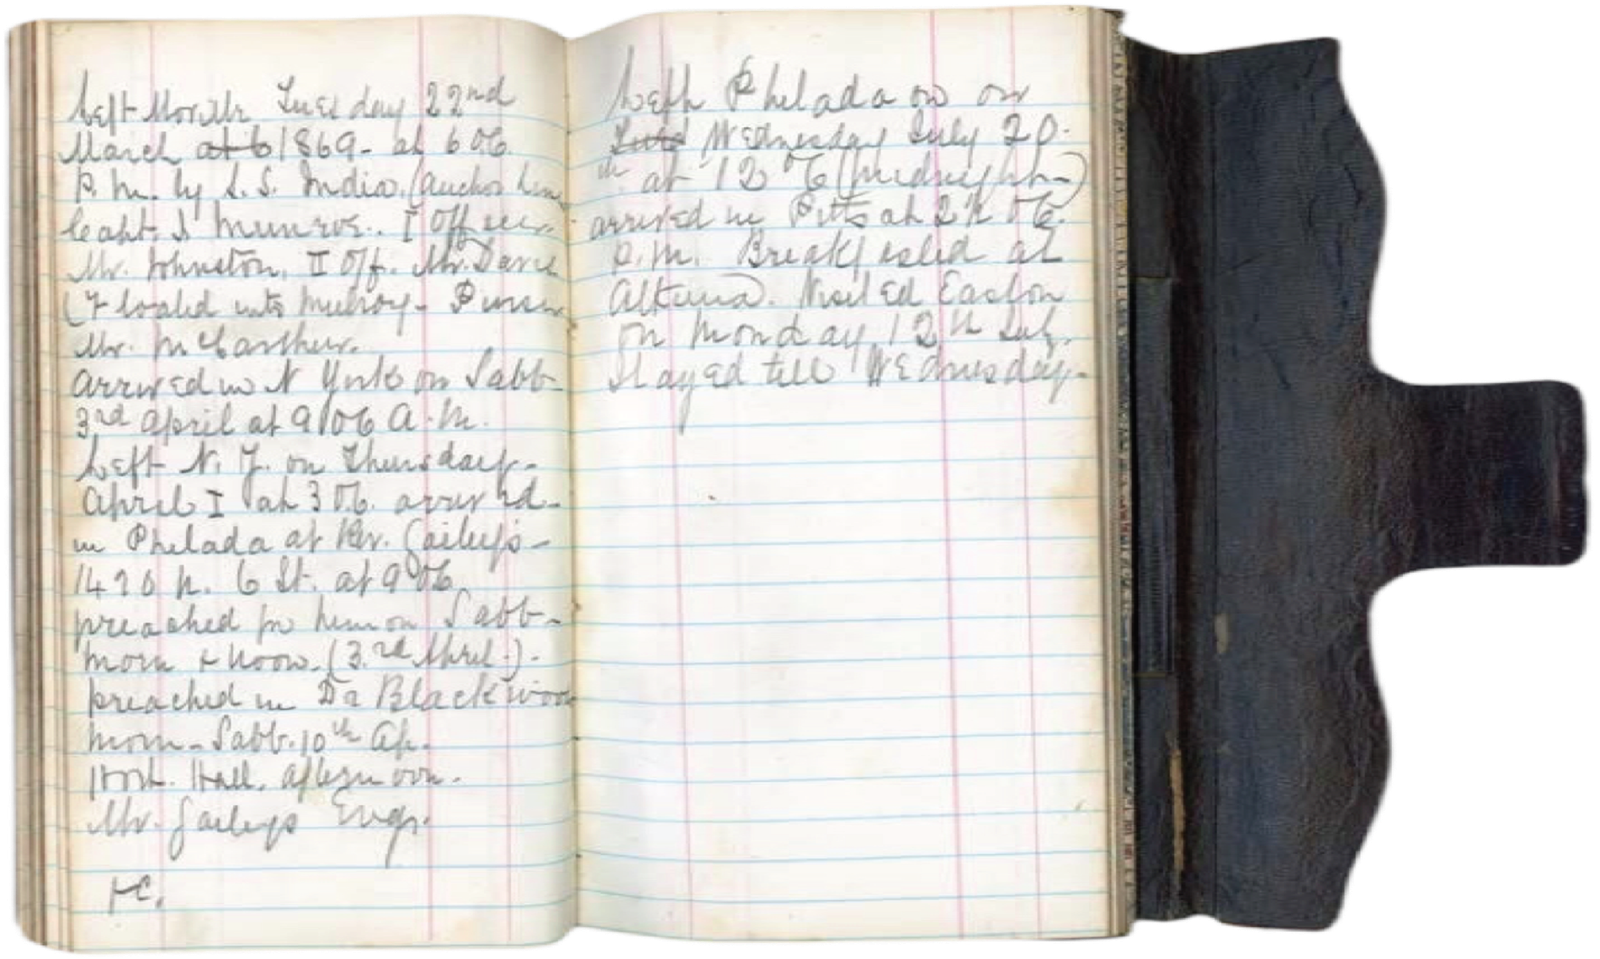 Left Moville Tuesday 22nd
March at 6 1869 - at 6 O'C.
P.M. by S.S. India. (Anchor Line
Capt. J Munroe. I Officer.
Mr. Johnston, II Off. Mr. Davis
Mr. McCarthur.
Arrived in N York on Sabb-
3rd April at 9 O'C A.M.
Left N. Y. on Thursday-
April I at 3 O'C. arrived-
in Philada at Rev. Gailey's-
1420 N. 6 St. at 9 O'C
preached for him on Sabb-
morn & noon. (3.rd April.)-
preached in Dr Blackwood
morn - Sabb. 10th Ap.
Hort. Hall, afternoon.
Mr. Gaileys Evg.
&c.
Left Philada on on
Wednesday July 20-
th at 12 O'C (midnight)
arrived in Pitts at 2½ O'C.
P.M. Breakfasted at
Altuna. Visited Easton
on Monday 12th July.
Stayed till Wednesday-